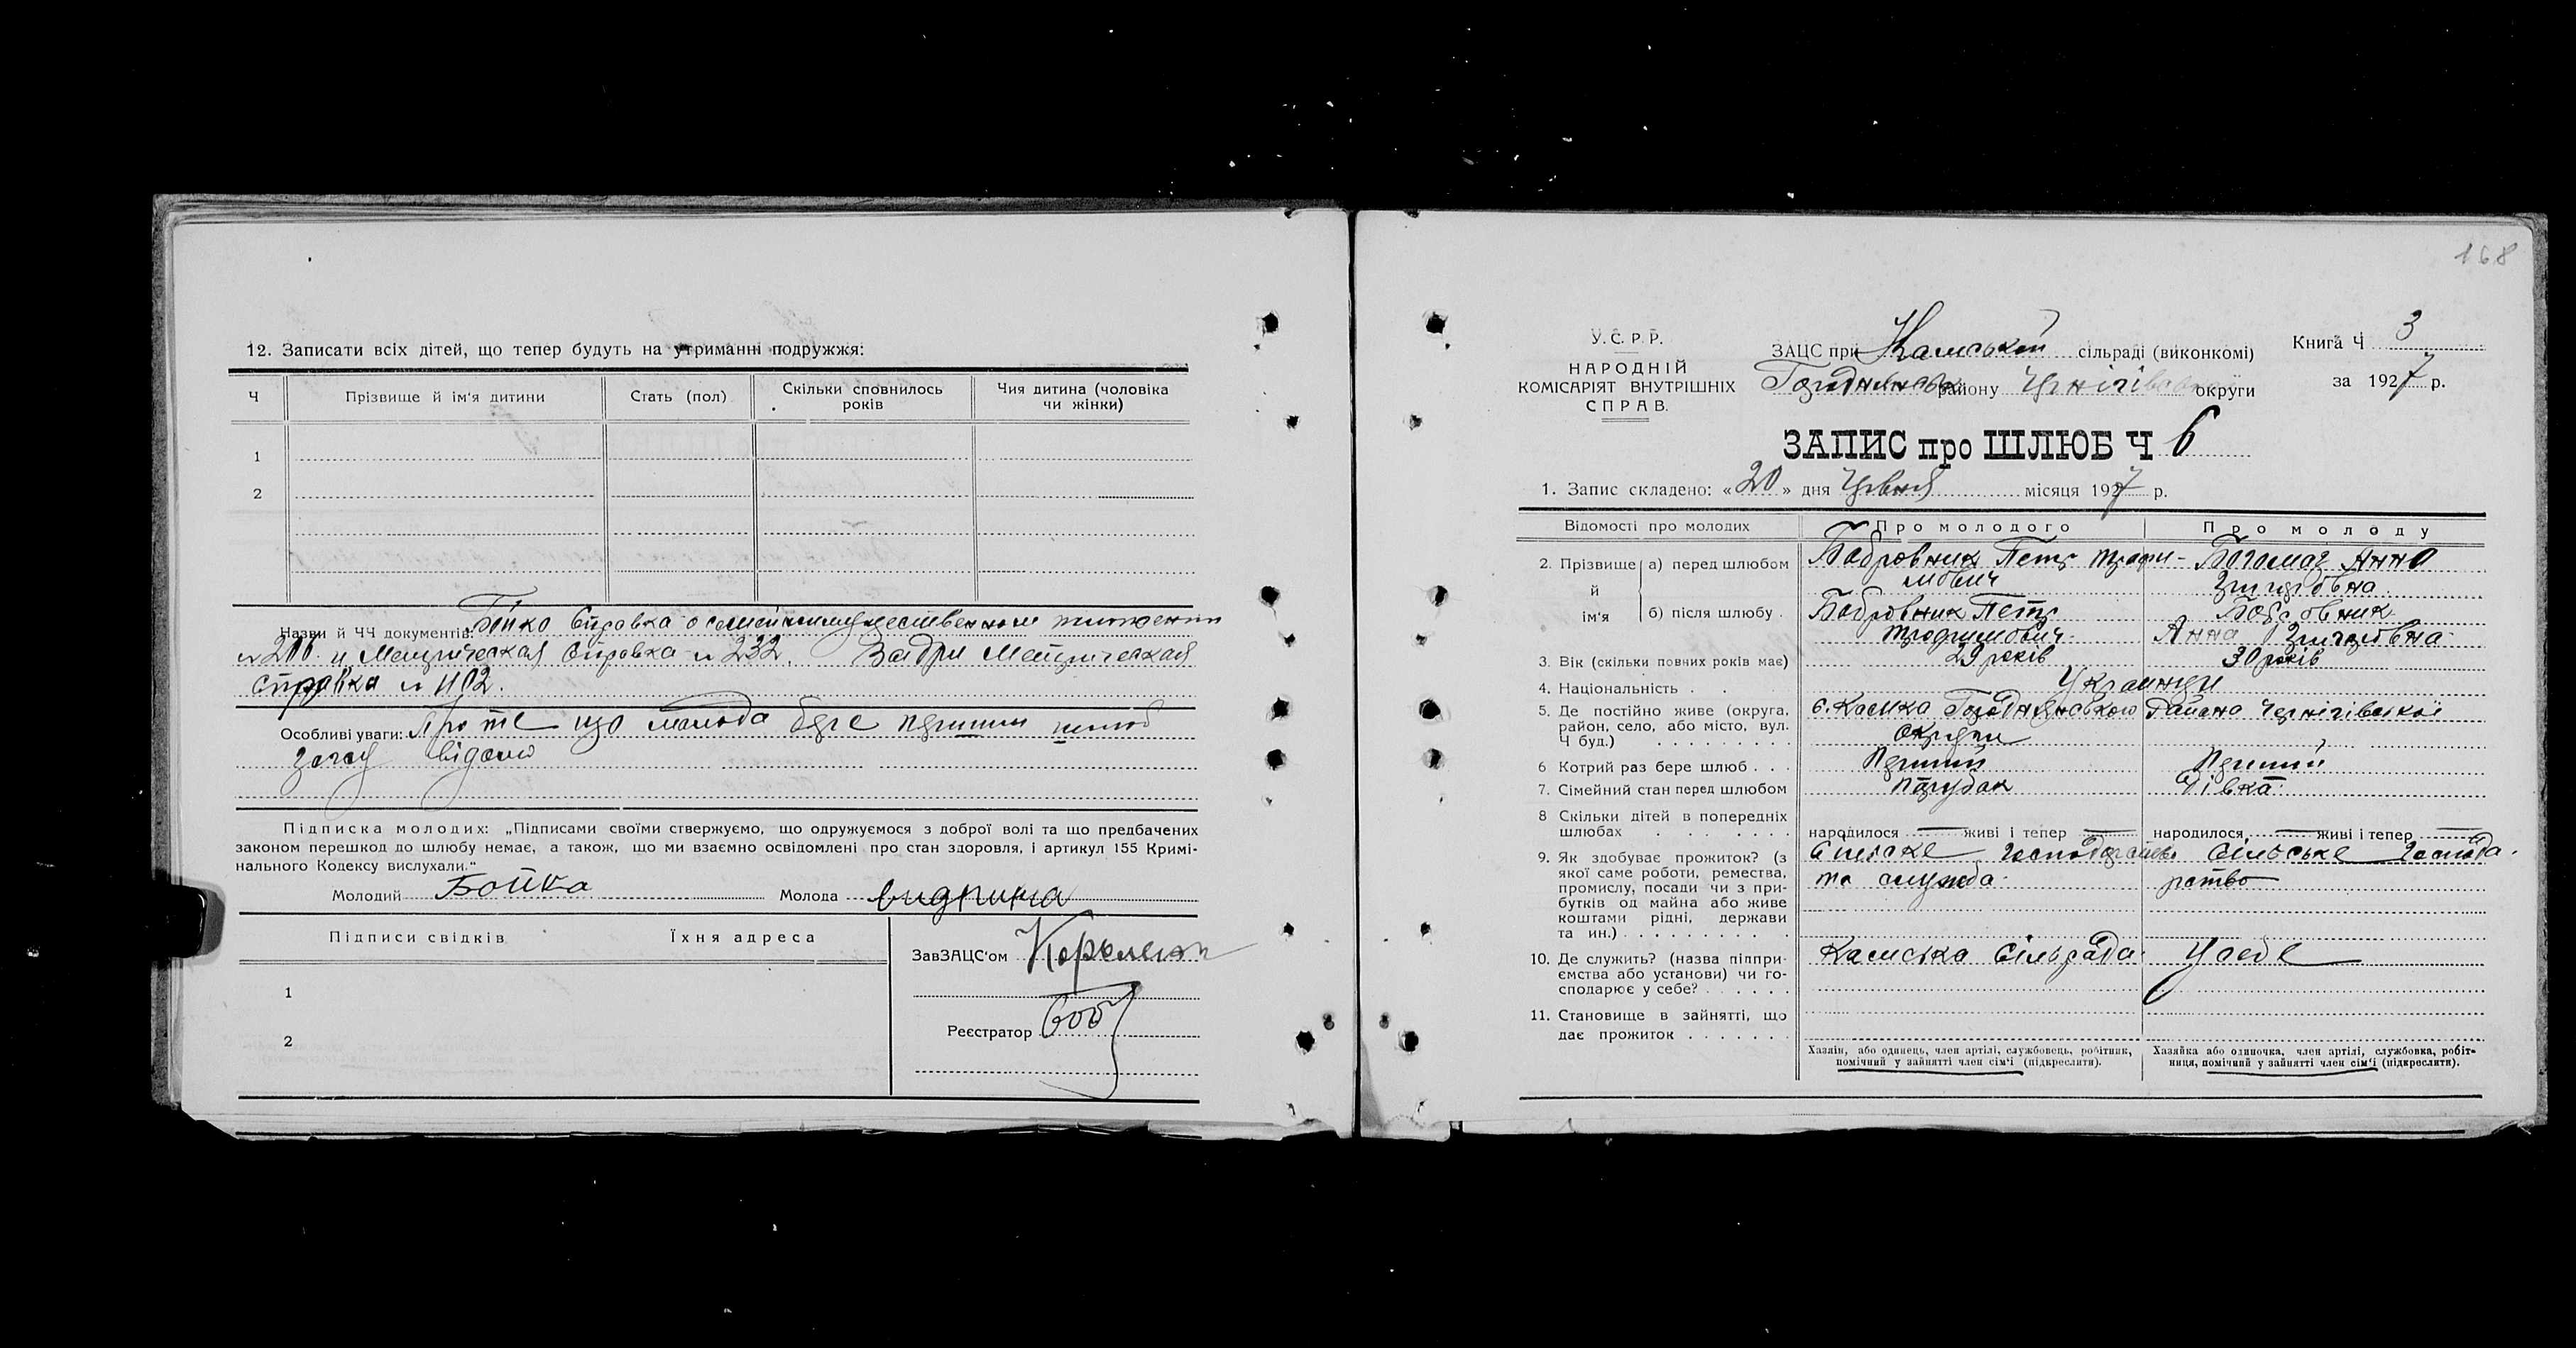 12. Записати всіх дітей, що тепер будуть на утриманні подружжя:
Ч
Прізвище й ім'я дитини
Стать (пол)
Скільки сповнилось
років
Чия дитина (чоловіка
чи жінки)
1
2
Назви й ЧЧ документів: Бойко Справка о семейноимущественном положении
№ 266 и Метрическая Справка № 232.
Метрическая
Справка № 1102.
Особливі уваги: Про те що молода бере перший шлюб
загсу відомо
Підписка молодих: „Підписами своїми стверджуємо, що одружуємося з доброї волі та що предбачених
законом перешкод до шлюбу немає, а також, що ми взаємно освідомлені про стан здоровля, і артикул 155 Кримі-
нального Кодексу вислухали.“
Молодий Бойко Молода
Підписи свідків
Їхня адреса
1
2
ЗавЗАЦС'ом
Реєстратор
168
У.С.Р.Р.
НАРОДНІЙ
КОМІСАРІЯТ ВНУТРІШНІХ
СПРАВ.
ЗАЦС при Камській сільраді (виконкомі)
Городнянськ району Чернігівської округи
Книга Ч 3
за 1927 р.
ЗАПИС про ШЛЮБ Ч 6
1. Запис складено: «20» дня Червня місяця 1927 р.
Відомості про молодих
Про молодого
Про молоду
2. Прізвище й ім'я
а) перед шлюбом
Бобровник Петр Трофи-
мович
Богомаз Анна
Григоровна
б) після шлюбу
Бобровник Петр
Трофимович
Бобровник
Анна Григоровна
3. Вік (скільки повних років має)
29 років
30 років
4. Національність
Украинци
5. Де постійно живе (округа,
район, село, або місто, вул.
Ч буд.)
с. Камка Городнянського Района Чернігівської
Округи
6 Котрий раз бере шлюб
Перший
Перший
7. Сімейний стан перед шлюбом
Парубок
Дівка
8 Скільки дітей в попередніх
шлюбах
народилося — живі і тепер —
народилося — живі і тепер —
9. Як здобуває прожиток? (з
якої саме роботи, ремества,
промислу, посади чи з при-
бутків од майна або живе
коштами рідні, держави
та ин.)
Сільске господарство
та служба
Сільське господа-
рство
10. Де служить? (назва підпри-
ємства або установи) чи го-
сподарює у себе?
Камська Сільрада
У себе
11. Становище в зайнятті, що
дає прожиток
Хазяін, або одинець, член артілі, службовець, робітник,
помічний у зайнятті член сім'ї (підкреслити).
Хазяйка або одиночка, член артілі, службовка, робіт-
ниця, помічний у зайнятті член сім'ї (підкреслити).